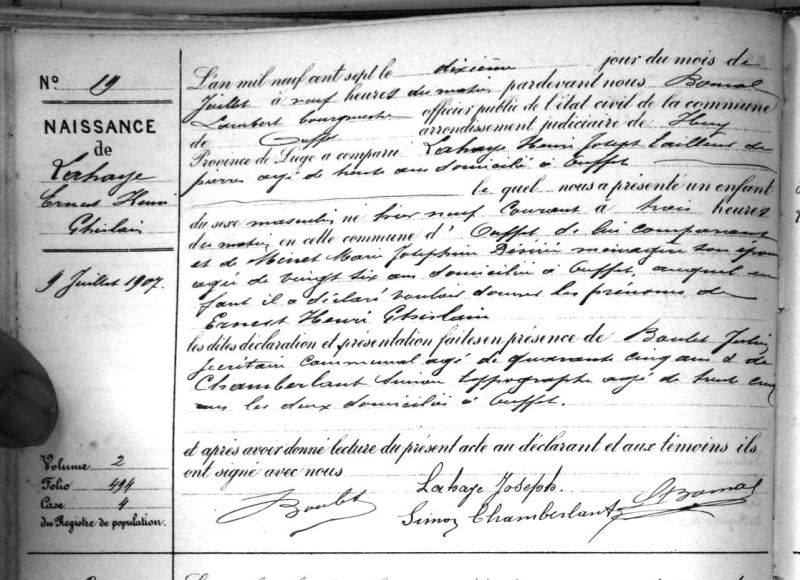 N° 19
NAISSANCE
de
Lahaye
Ernest Henri
Ghislain
9 Juillet 1907.
Volume 2
Folio 494
Case 4
du Registre de population.
L'an mil neuf cent sept le dixième jour du mois de
Juillet à neuf heures du matin pardevant nous Bomal
Lambert bourgmestre officier public de l'état civil de la commune
de Ouffet arrondissement judiciaire de Huy
Province de Liège a comparu Lahaye Henri Joseph tailleur de
pierres agé de trente ans domicilié à Ouffet
le quel nous a présenté un enfant
du sexe masculin né hier neuf courant à trois heures
du matin en cette commune d' Ouffet de lui comparant
et de Minet Marie Joséphine Désirée ménagère son épouse
agée de vingt six ans domiciliée à Ouffet, auquel en
fant il a déclaré vouloir donner les prénoms de
Ernest Henri Ghislain
les dites déclaration et présentation faites en présence de Boulet
secrétaire communal agé de quarante cinq ans & de
Chamberlant Simon typographe agé de trente cinq
ans les deux domiciliés à Ouffet.
et après avoir donné lecture du présent acte au déclarant et aux témoins ils
ont signé avec nous
Lahaye Joseph.
Boulet
Simon Chamberlant
LBomal